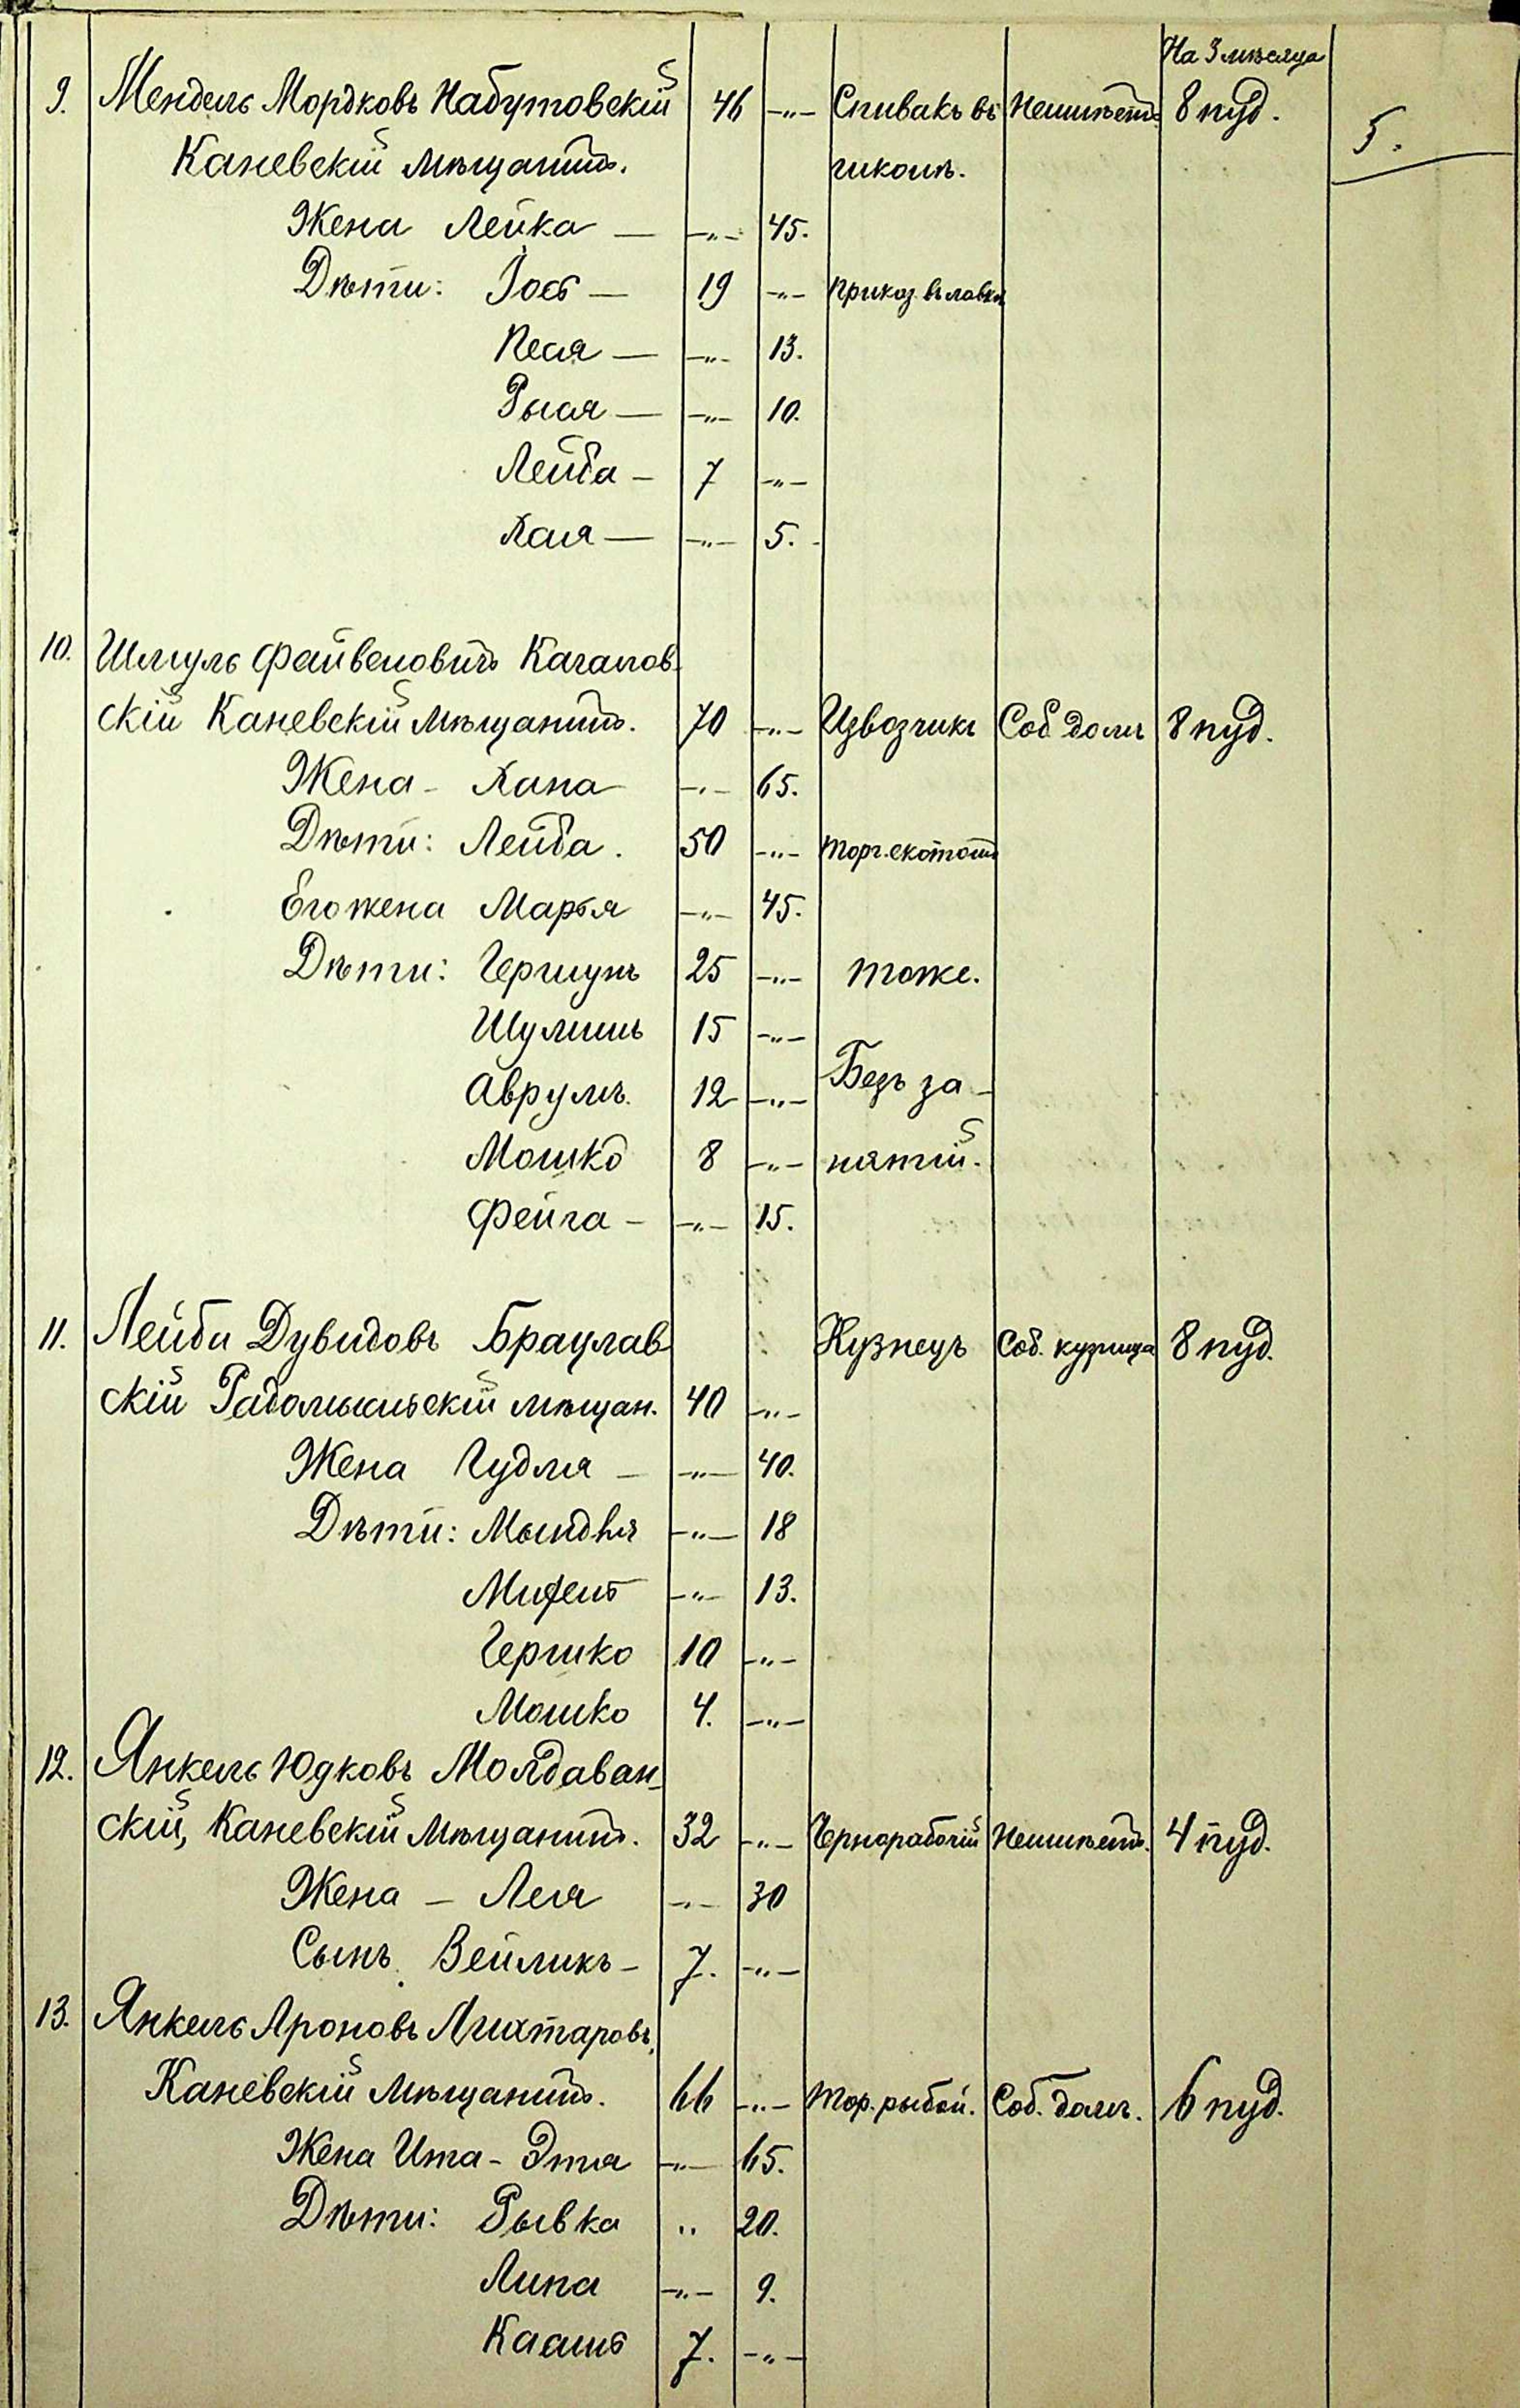 На 3 мѣсяца
9. Мендель Мордковъ Набутовскій 46 -„- Спивакъ въ Неимѣетъ. 8 пуд. 5.
Каневскій мѣщанинъ. школѣ.
Жена Лейка — -„- 45.
Дѣти: Іось — 19 -„- приказ. въ лавкѣ
Песя — -„- 13.
Рыся — -„- 10.
Лейба - 7 -„-
Хая — -„- 5.
10. Шмуль Файвеловичъ Кагалов-
скій Каневскій мѣщанинъ. 70 -„- Извозчикъ Соб домъ 8 пуд.
Жена - Хана -„- 65.
Дѣти: Лейба. 50 -„- торг. скотомъ
Его жена Марья -„- 45.
Дѣти: Гершунъ 25 -„- тоже.
Шулимъ 15 -„-
Аврумъ. 12 -„- Безъ за-
Мошко 8 -„- нятій.
Фейга - -„- 15.
11. Лейба Дувидовъ Браулав Кузнецъ Соб. кузница 8 пуд.
скій Радомысльскій мѣщан. 40 -„-
Жена Гудля - -„- 40.
Дѣти: Мындля -„- 18
-„- 13.
Гершко 10 -„-
Мошко 4. -„-
12. Янкель Юдковъ Молдаван-
скій, Каневскій мѣщанинъ. 32 -„- Чернорабочій Неимѣетъ. 4 пуд.
Жена - Лея -„- 30
Сынъ. Вейликъ - 7. -„-
13. Янкель Ароновъ Лихтаровъ,
Каневскій мѣщанинъ. 66 -„- тор. рыбой. Соб. домъ. 6 пуд.
Жена Ита - Этя -„- 65.
Дѣти: Рывка „ 20.
Липа -„- 9.
7. -„-